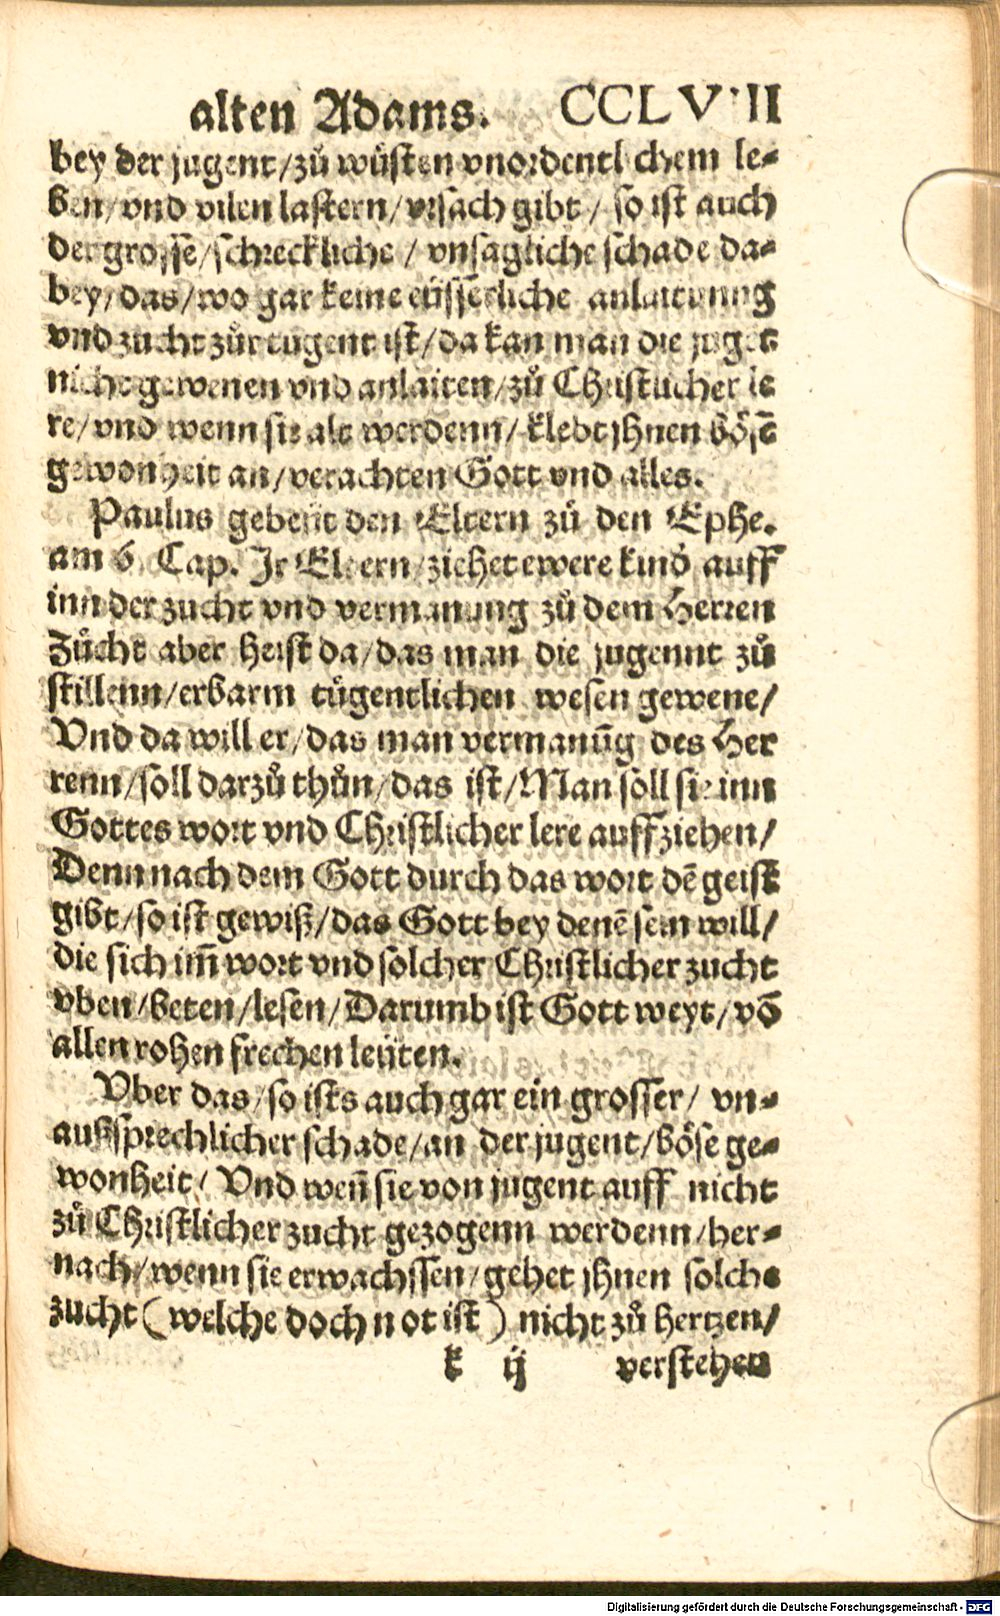 alten Adams. CCLVIII
bey der jugent/zů wůsten vnordentlichem le-
ben/vnd vilen lastern/vrsach gibt/ so ist auch
der grosse/schreckliche / vnsagliche schade da-
bey/das/wo gar keine eüsserliche anlaittung
vnd zucht zůr tugent ist/da kan man die juget
nicht gewenen vnd anlaiten/zů Christlicher le
re/vnd wenn sie alt werdenn/ klebt jhnen bösē
gewonheit an/verachten Gott vnd alles.
Paulus gebeüt den Eltern zů den Ephe.
am 6. Cap. Jr Eltern/ziehet ewere kind auff
inn der zucht vnd vermanung zů dem Herren
Zůcht aber heist da/das man die jugennt zů
stillenn/erbarm tůgentlichen wesen gewene/
Vnd da will er/das man vermanūg des Her
renn/soll darzů thůn/das ist/Man soll sie inn
Gottes wort vnd Christlicher lere auffziehen/
Denn nach dem Gott durch das wort dē geist
gibt/so ist gewiß/das Gott bey denē sein will/
die sich im̄ wort vnd solcher Christlicher zucht
vben/beten/lesen/Darumb ist Gott weyt/vō
allen rohen frechen leüten.
Vber das/so ists auch gar ein grosser/ vn-
außsprechlicher schade/an der jugent/böse ge-
wonheit/ Vnd wen̄ sie von jugent auff nicht
zů Christlicher zucht gezogenn werdenn/her-
nach/wenn sie erwachssen/gehet jhnen solche
zucht (welche doch not ist) nicht zů hertzen/
k ij verstehen
Digitalisierung gefördert durch die Deutsche Forschungsgemeinschaft - DFG